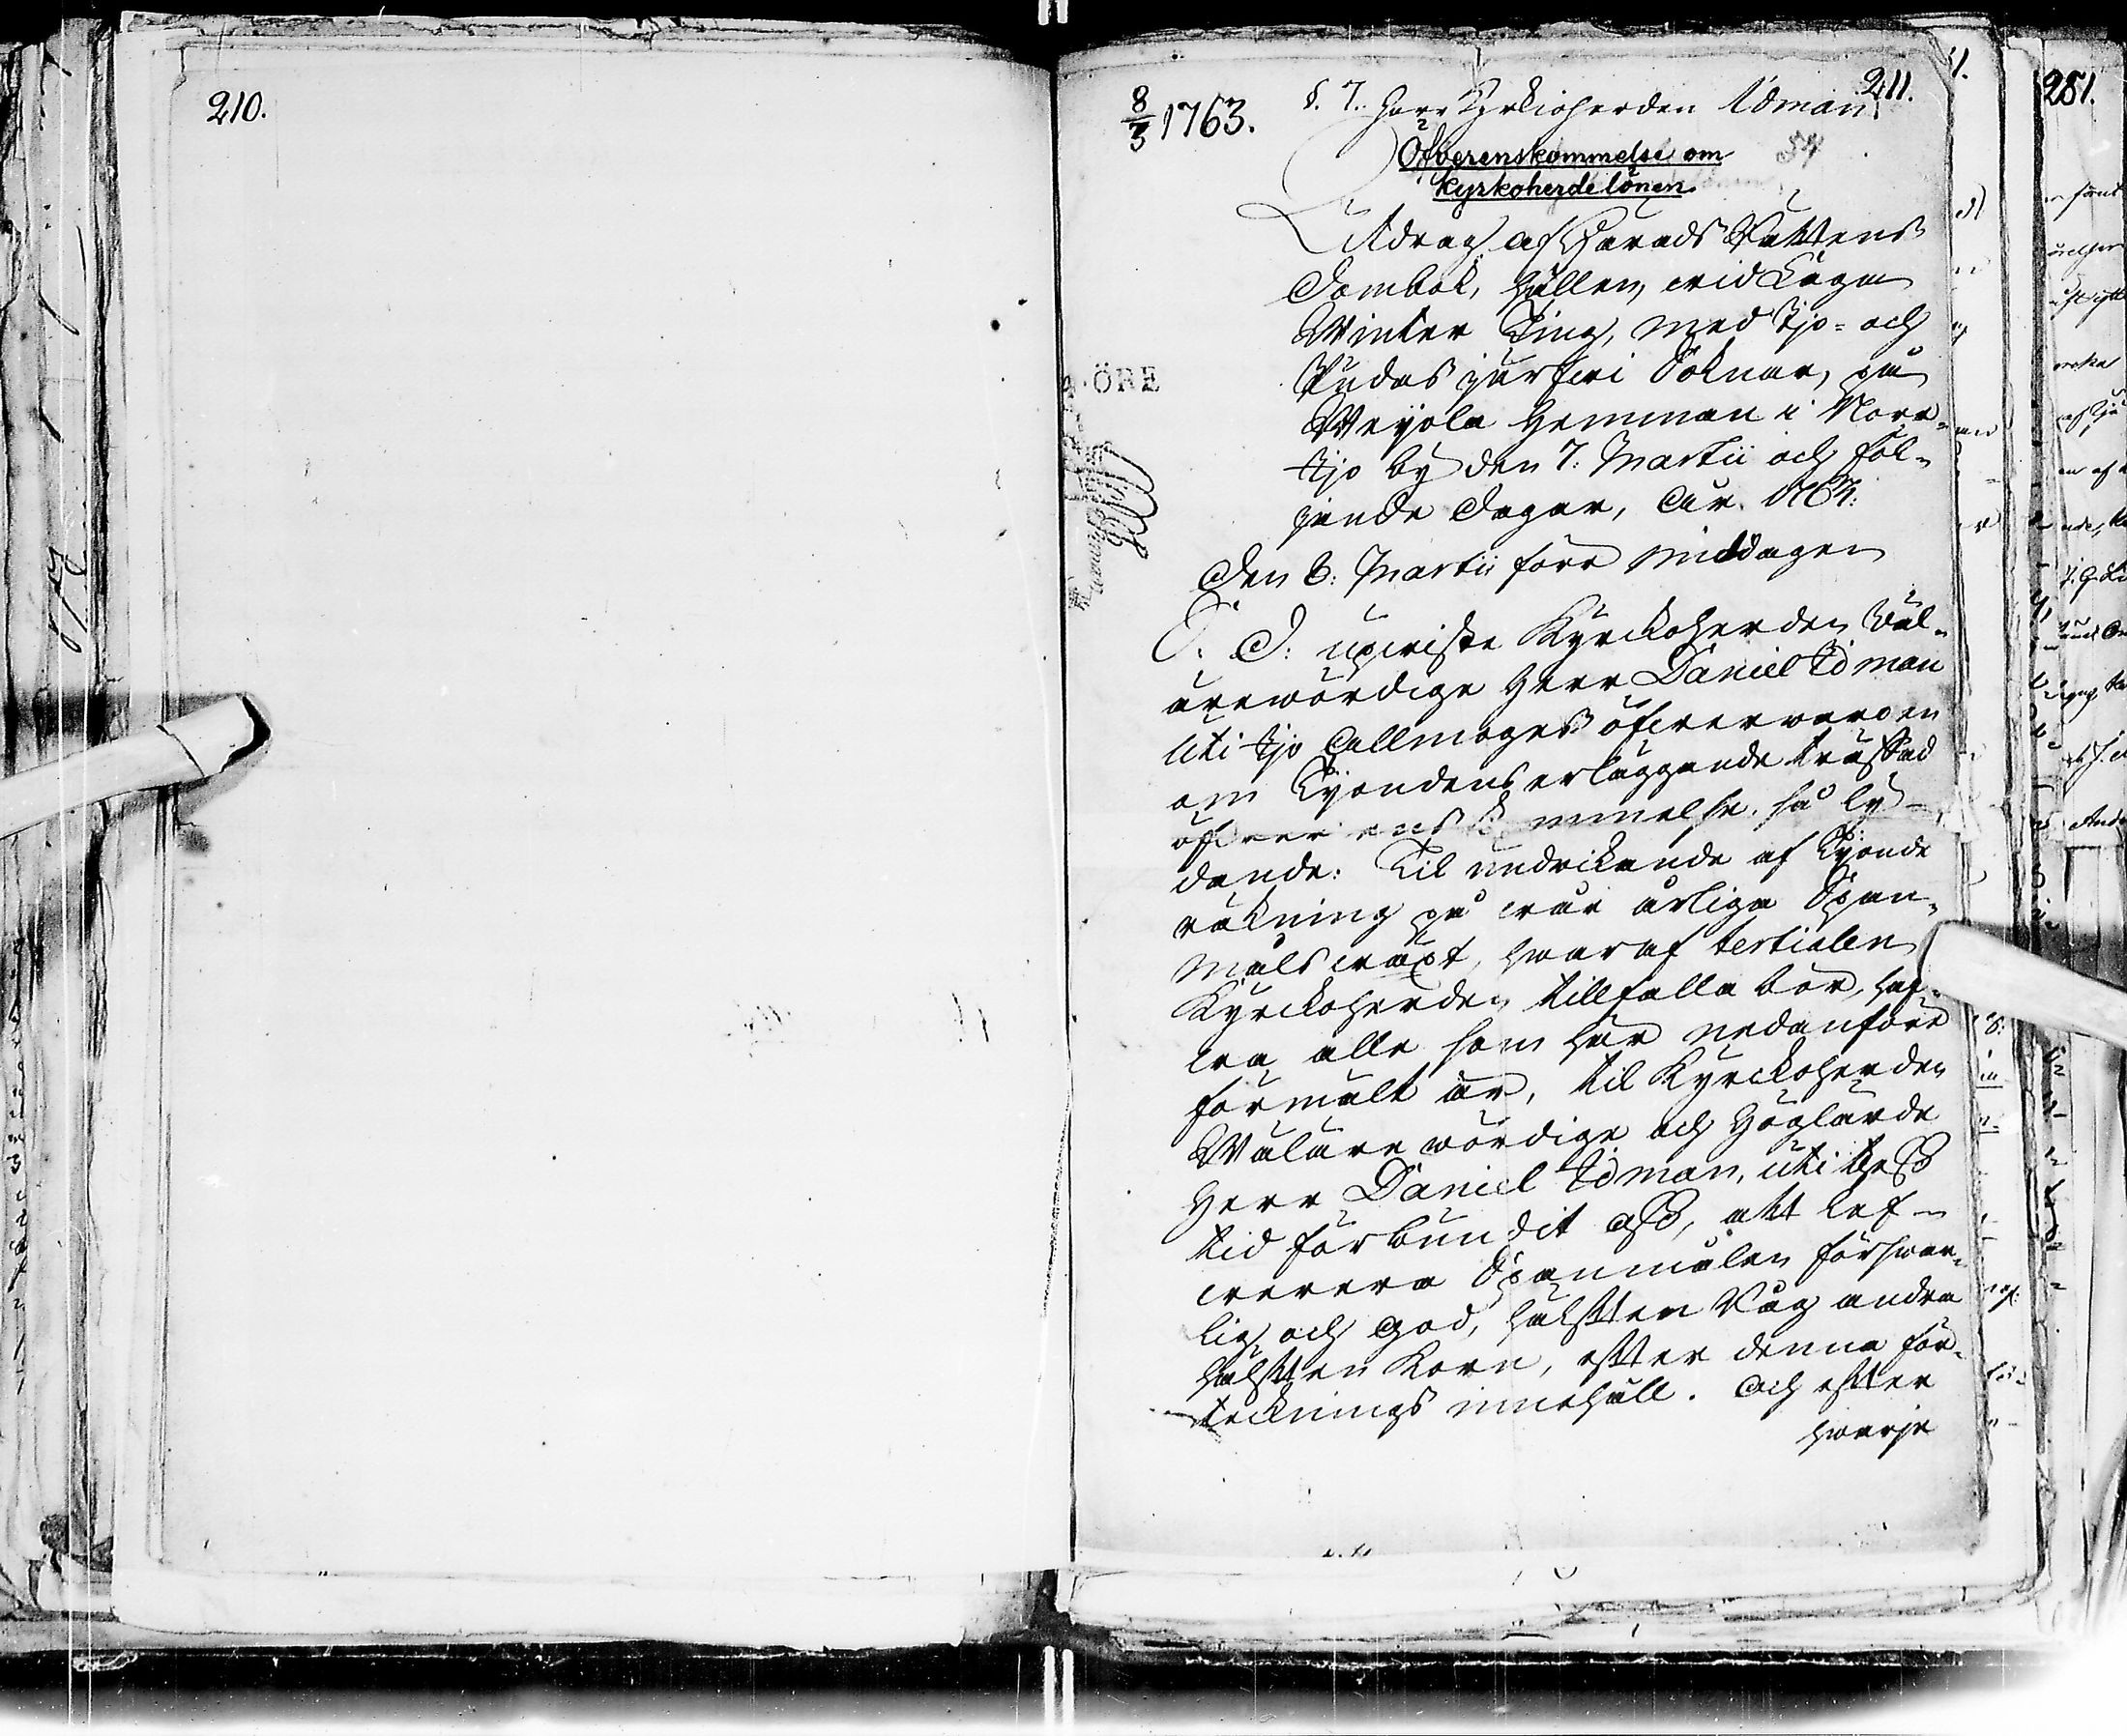 210.
211.
8/3 1763.
§. 7. Herr Kyrkioherden Idman
Öfverenskommelse om
kyrkoherdelönen
Utdrag af Härads Rättens
Dombok, hållen, vid Laga
Winter Ting, med Ijo- och
Pudasjärfvi Soknar, på
Weyola Hemman i Norr-
Ijo by den 7. Martii och föl-
jande dagar, År.
Den 8. Martii förr middagen
S. D. upviste Kyrckoherden Wäl-
ärewördige Herr Daniel Idman
Uti Ijo allmoges öfverwaro en
om Tijondens erläggande träffad
öfverenskommelse, så ly-
dande: Til undvikande af Tijonde
räkning på vår årliga Span-
måls växt, hvaraf tertialen
Kyrckoherden tillfalla bör, haf-
va alle som här nedanföre
förmält är, til Kyrckoherden
Wälärewördige och Höglärde
Herr Daniel Idman, uti thess
tid förbundit oss, att lef-
verera Spanmålen förswar-
lig och god, hälften Råg andra
hälften Korn, efter denna för-
tecknings innehåll. Och efter
hwarje
ÖRE
281.